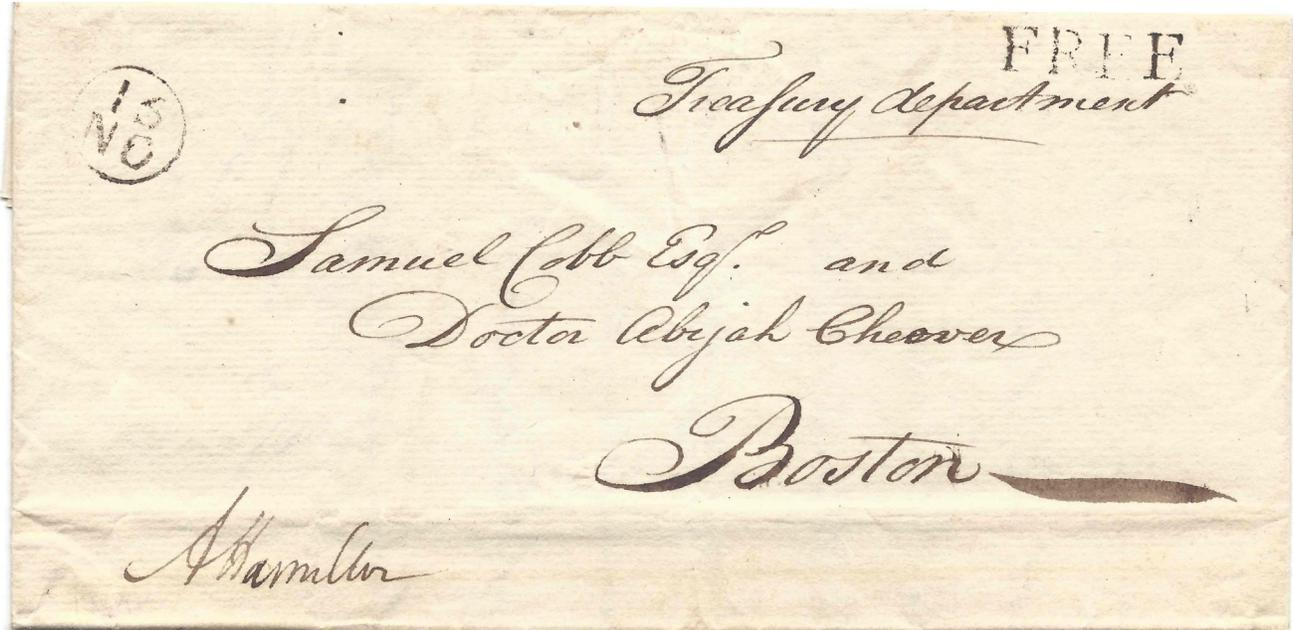 FREE
Treasury department
16
NO
Samuel Cobb Esqr. and
Doctor Abijah Cheever
Boston
A Hamilton